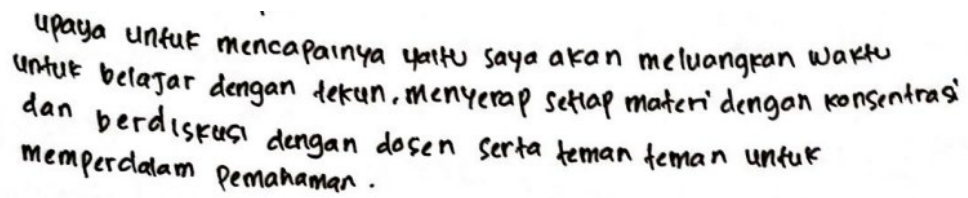 upaya untuk mencapainya yaitu saya akan meluangkan waktu
untuk belajar dengan tekun, menyerap setiap materi dengan konsentrasi
dan berdiskusi dengan dosen serta teman teman untuk
memperdalam pemahaman.